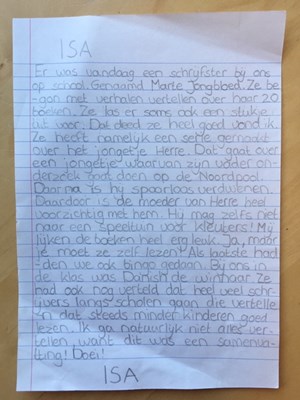 ISA
Er was vandaag een schrijfster bij ons
op school. Genaamd Marte Jongbloed. Ze be-
gon met verhalen vertellen over haar 20
boeken. Ze las er soms ook een stukje
uit voor. Dat deed ze heel goed vond ik.
Ze heeft namelijk een serie gemaakt
over het jongetje Herre. Dat gaat over
een jongetje waarvan zijn vader on-
derzoek moet doen op de Noordpool.
Daarna is hij spoorloos verdwenen.
Daardoor is de moeder van Herre heel
voorzichtig met hem. Hij mag zelfs niet
naar een speeltuin voor kleuters! Mij
lijken de boeken heel erg leuk. Ja, maar
je moet ze zelf lezen! Als laatste had
-den we ook bingo gedaan. Bij ons in
de klas was Danish de winnaar. Ze
had ook nog verteld dat heel veel schr-
ijvers langs scholen gaan die vertelle
-n dat steeds minder kinderen goed
lezen. Ik ga natuurlijk niet alles ver-
tellen, want dit was een samenva-
tting! Doei!
ISA